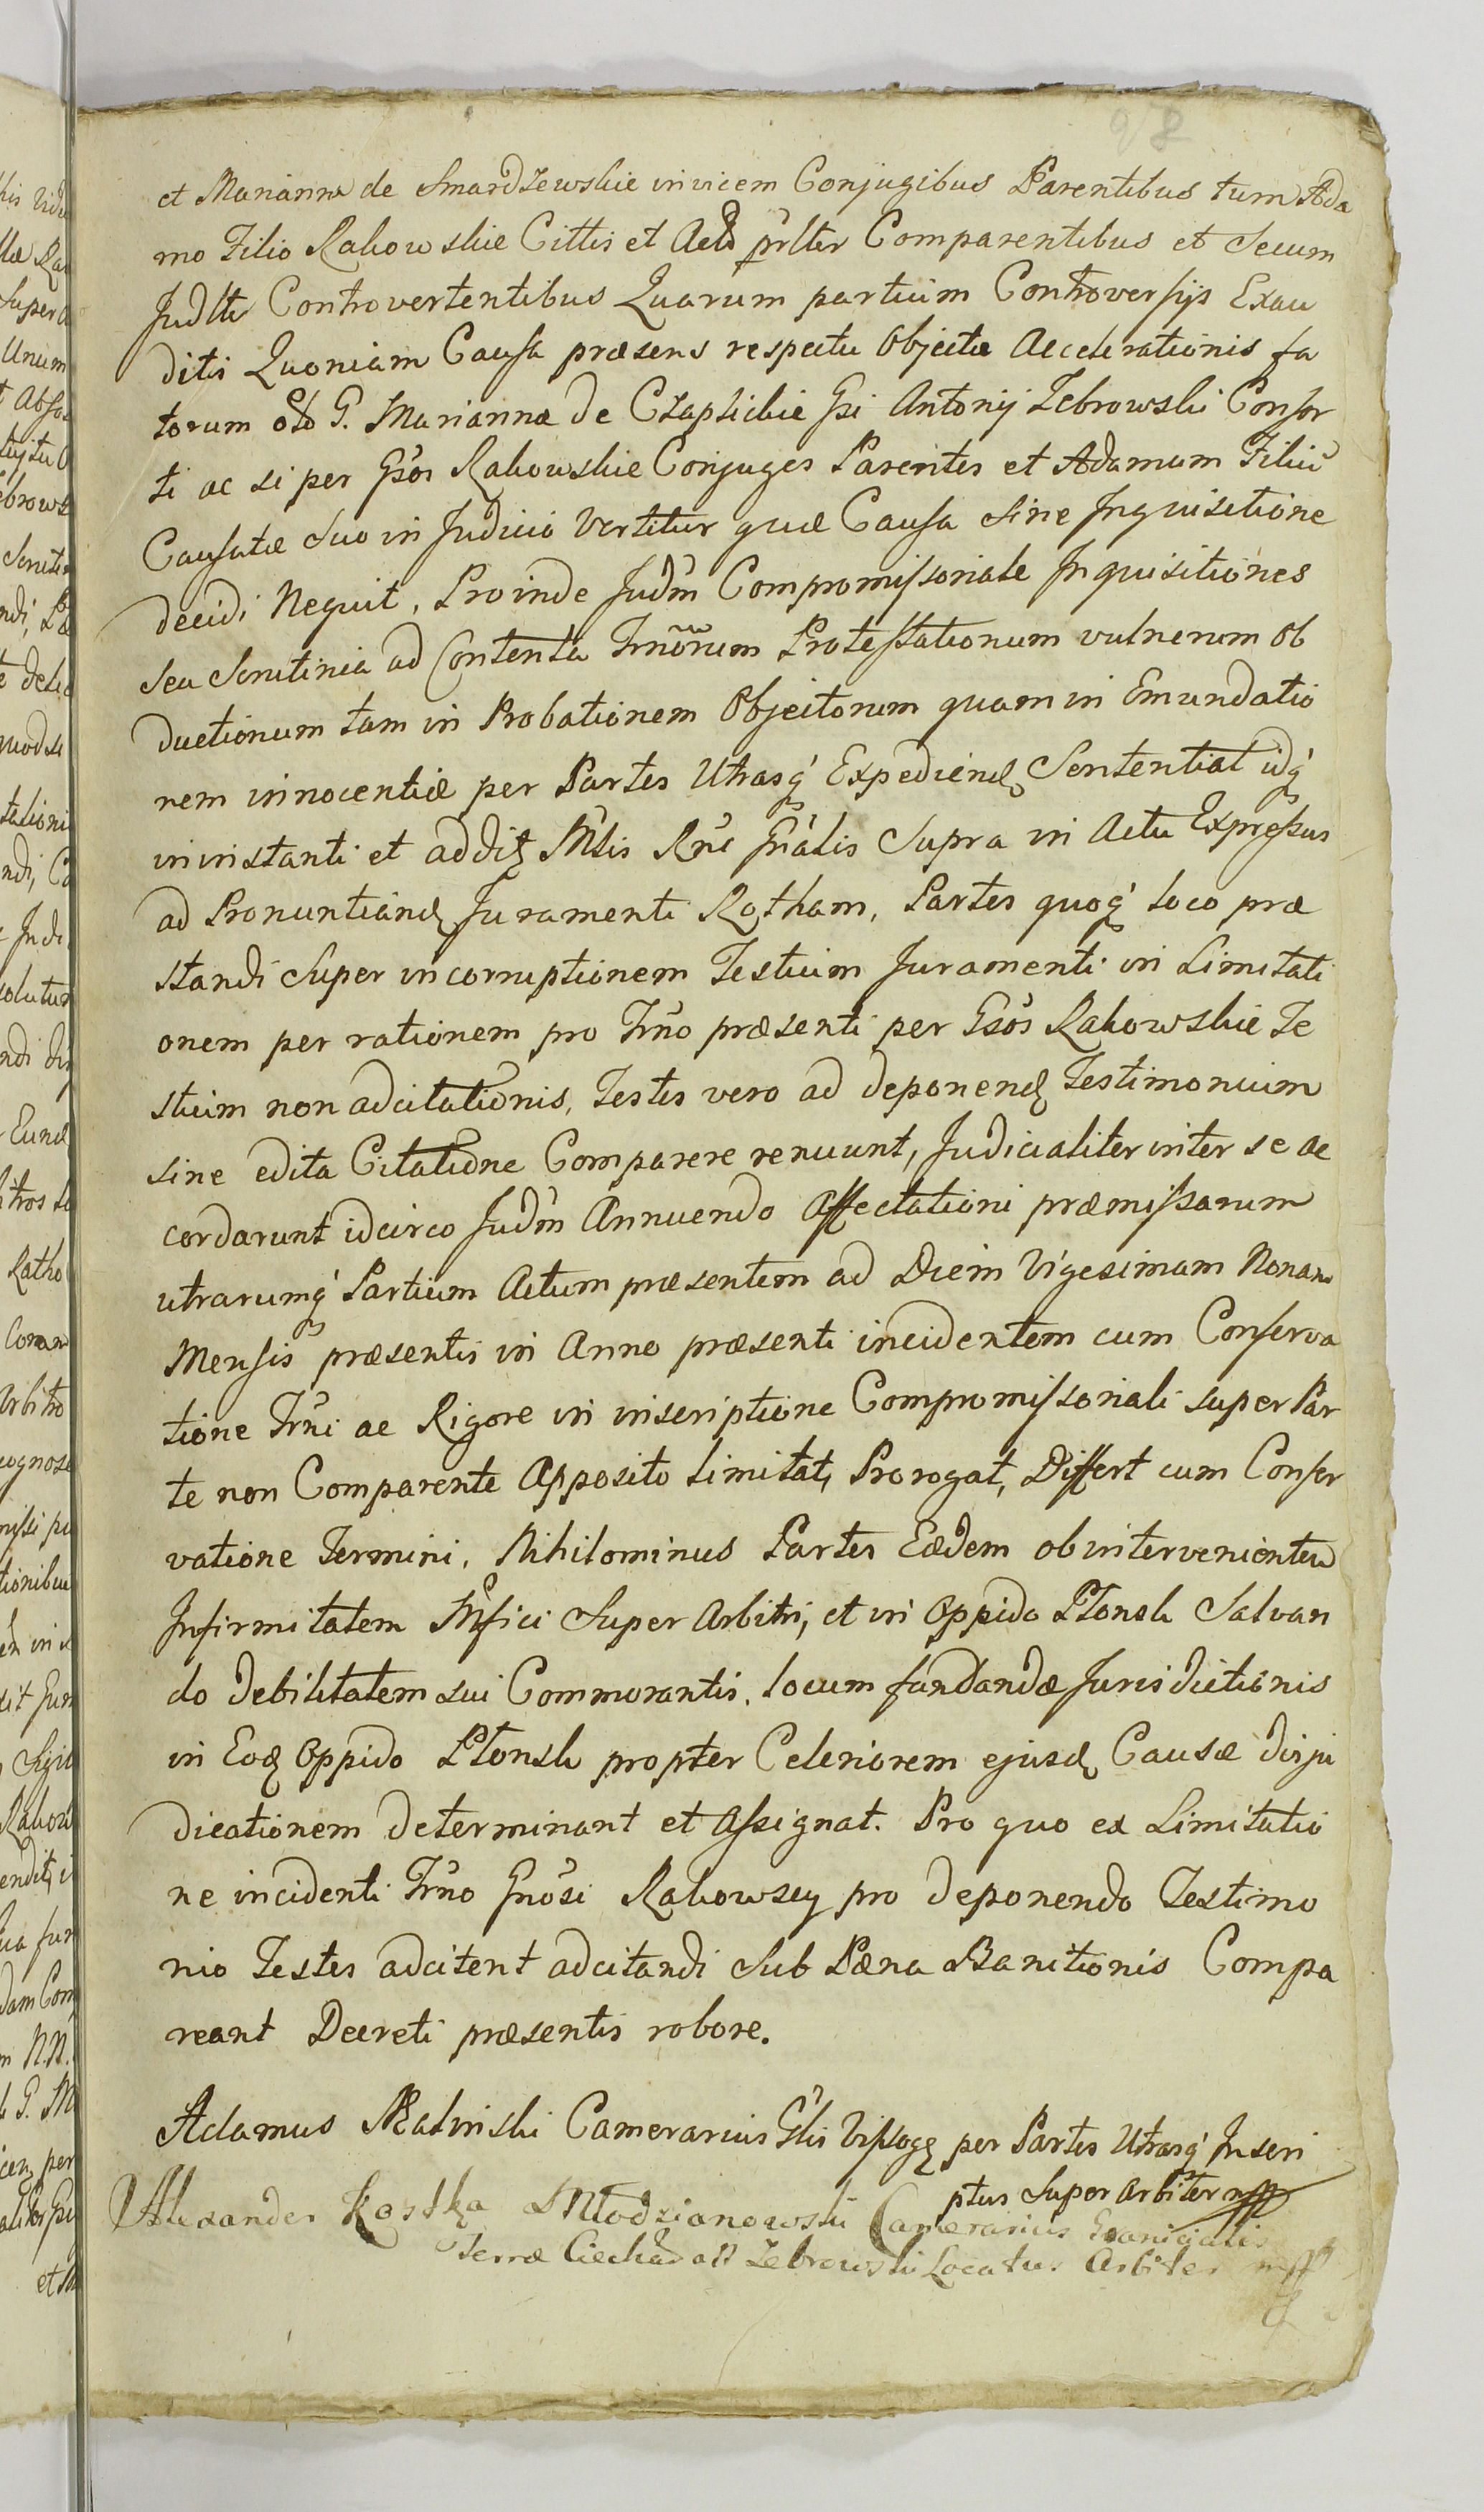 98
et Marianna de Smardzewskie invicem Conjugibus Parentibus tum Ada
mo Filio Rakowskie Cittis et Actõ prlter Comparentibus et Secum
Judlter Controvertentibus Quarum partium Controversijs Exau
ditis Quoniam Causa præsens respectu Objectæ Accelerationis fa
torum olõ G. Marianna de Czaplickie Gsi Antonij Zebrowski Consor
ti ac si per Gsos Rakowskie Conjuges Parentes et Adamum Filiũ
Causatæ Suo in Judicio Vertitur quæ Causa Sine Inquisitione
decidi Nequit, Proinde Judm Compromissoriale Inquisitiones
Seu Scrutinia ad Contenta Trnõrum Protestationum vulnerum Ob
ductionum tam in Probationem Objectorum quam in Emundatio
nem innocentiæ per Partes Utrasq́ Expediend Sententiat idq́
in instanti et addit Mtis Rñe Gñalis Supra in Actu Expressus
ad Pronuntiand Juramenti Rotham, Partes quoq́ loco præ
standi Super incorruptionem Testium Juramenti in Limitati
onem per rationem pro Trño præsenti per Gsos Rakowskie Te
stium non adcitationis, Testes vero ad deponend Testimonium
sine edita Citatione Comparere renuunt, Judicialiter inter se ac
cordarunt idcirco Judm Annuendo Affectationi præmissarum
utrarumq́ Partium Actum præsentem ad Diem Vigesimam Nonam
Mensis præsentis in Anno præsenti incidentem cum Conserva
tione Trñi ac Rigore in inscriptione Compromissoriali super Par
te non Comparente Apposito limitat, Prorogat, Differt cum Conser
vatione Termini, Nihilominus Partes Eædem ob intervenientem
Infirmitatem Mfici Super Arbitri, et in Oppido Płonsk Salvan
do debilitatem sui Commorantis, locum fundandæ Jurisdictionis
in Eod Oppido Płonsk propter Celeriorem ejusd Causæ diju
dicationem determinant et Assignat. Pro quo ex Limitatio
ne incidenti Trño Gnosi Rakowscy pro deponendo Testimo
nio Testes adcitent adcitandi Sub Pæna Banitionis Compa
reant Decreti præsentis robore.
Adamus Malinski Camerarius Glis Vissog per Partes Utrasq́ Inscri
ptus Super Arbiter mpp
Alexander Kostka Młodzianowski Camerarius Granicialis
Terræ Ciechan Zebrowski Locatus Arbiter mpp